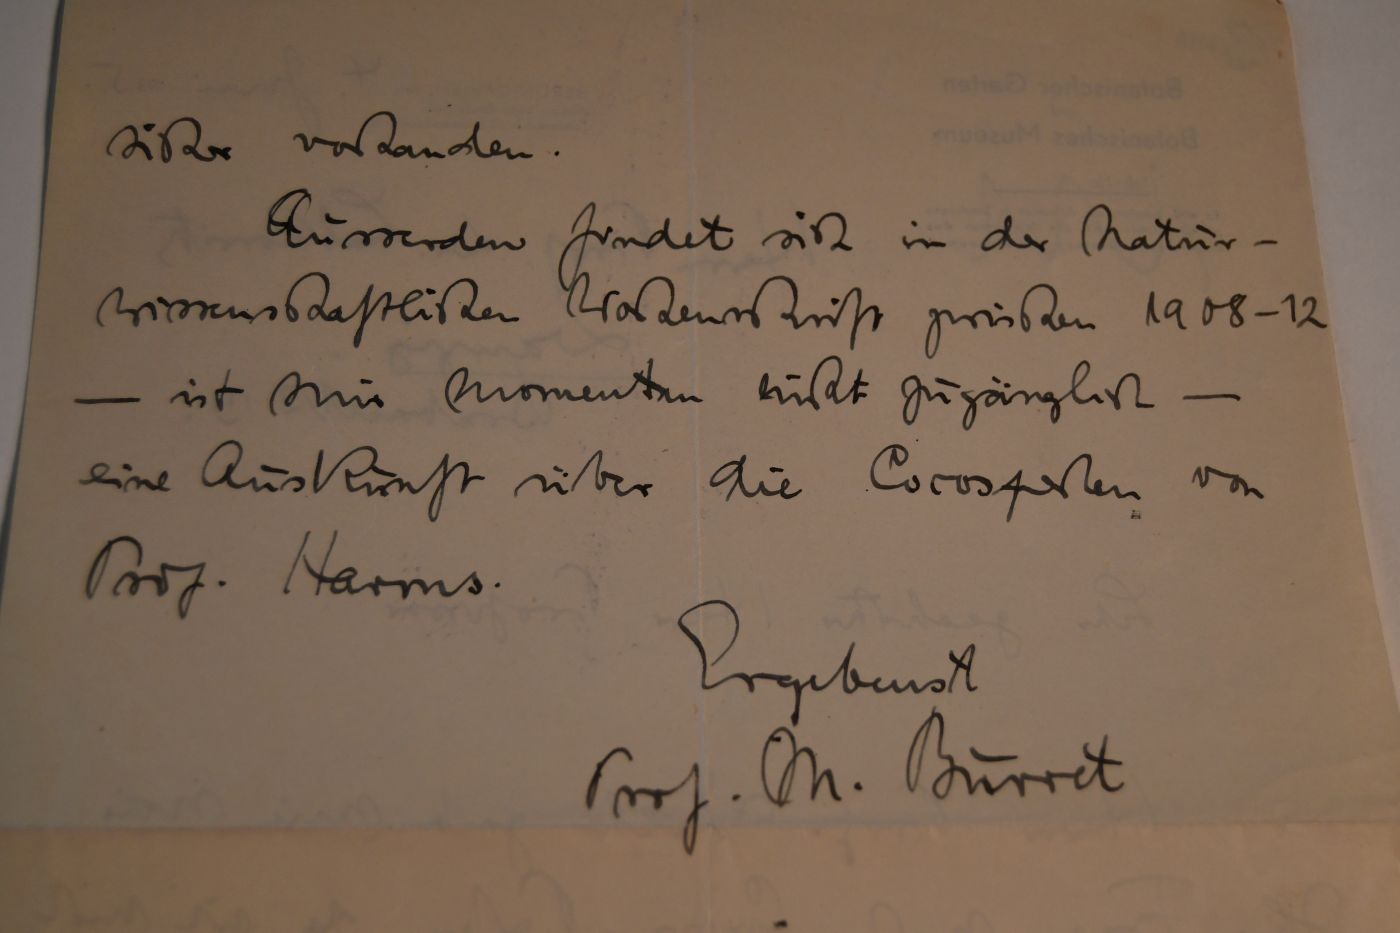 sicher vorhanden.
Ausserdem findet sich in der Natur-
wissenschaftlichen Wochenschrift zwischen 1908-12
— ist mir momentan nicht zugänglich —
eine Auskunft über die Cocosperlen von
Prof. Harms.
Ergebenst
Prof. M. Burret